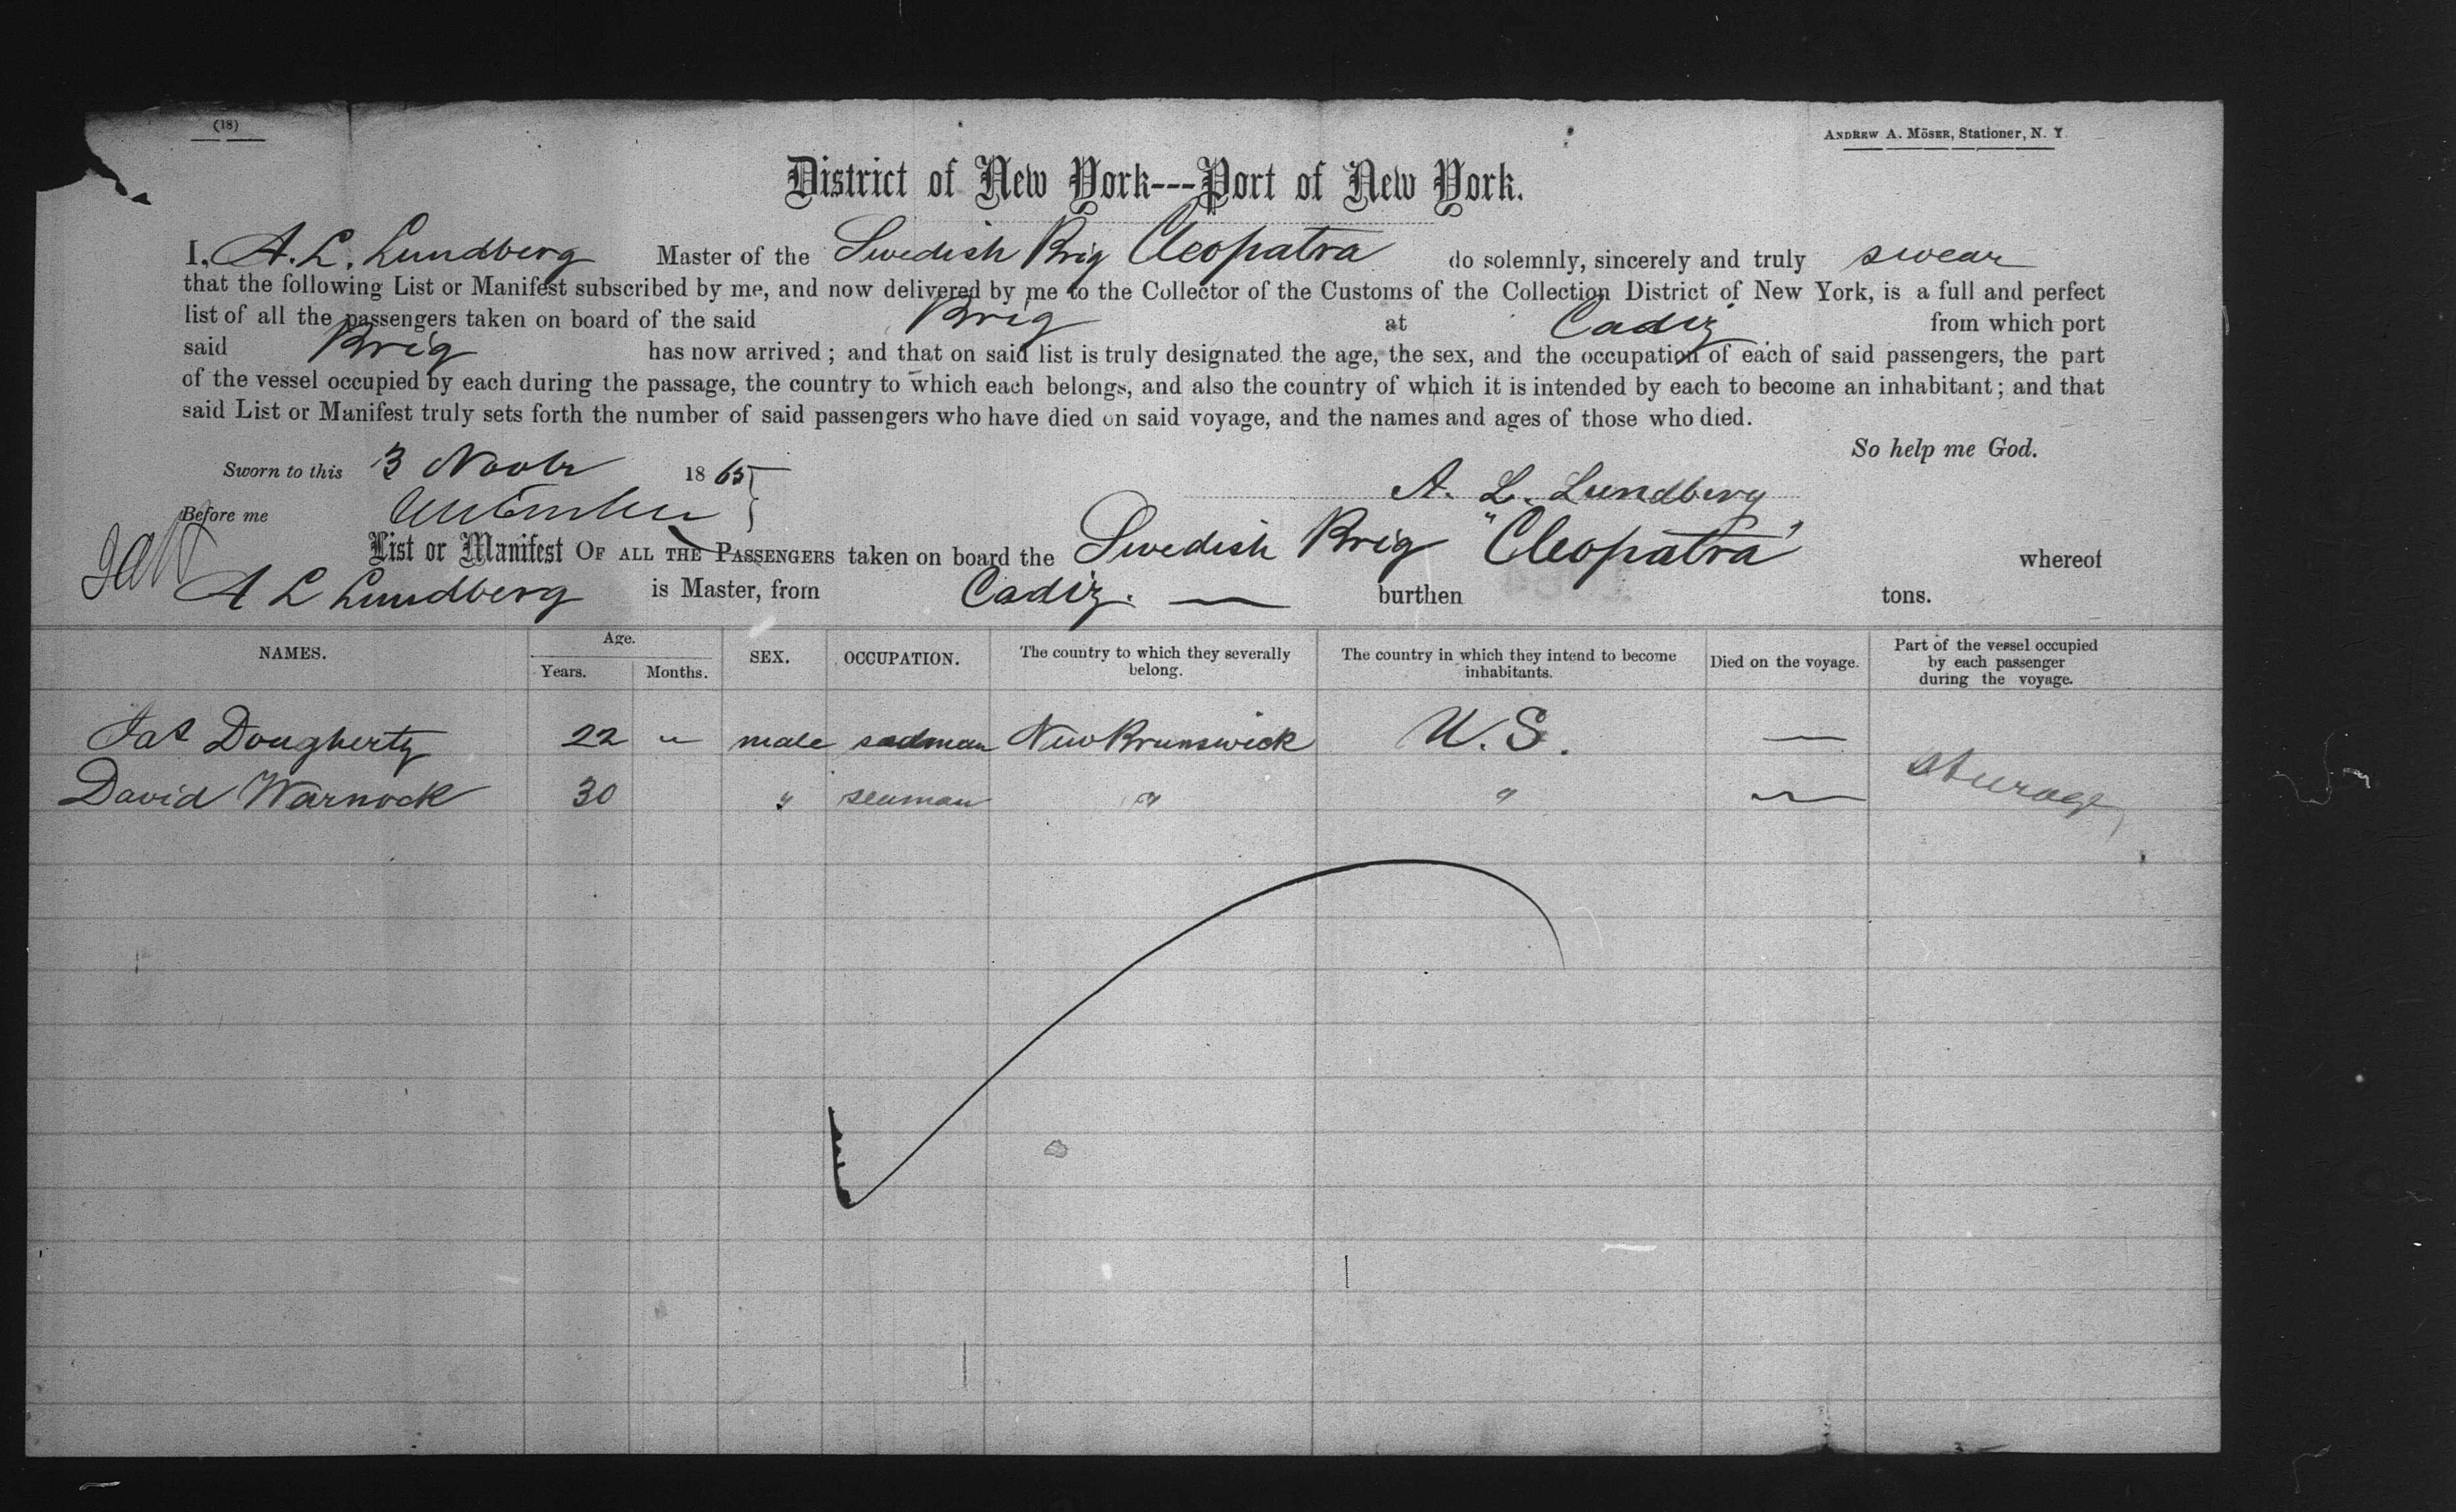 (18)
ANDREW A. MÖSER, Stationer, N. Y
District of New York---Port of New York.
I, A. L. Lundberg Master of the Swedish Brig Cleopatra do solemnly, sincerely and truly swear
that the following List or Manifest subscribed by me, and now delivered by me to the Collector of the Customs of the Collection District of New York, is a full and perfect
list of all the passengers taken on board of the said Brig at Cadiz from which port
said Brig has now arrived; and that on said list is truly designated the age, the sex, and the occupation of each of said passengers, the part
of the vessel occupied by each during the passage, the country to which each belongs, and also the country of which it is intended by each to become an inhabitant; and that
said List or Manifest truly sets forth the number of said passengers who have died on said voyage, and the names and ages of those who died.
So help me God.
Sworn to this 3 Novbr 1865
A. L. Lundberg
Before me
List or Manifest OF ALL THE PASSENGERS taken on board the Swedish Brig "Cleopatra" whereof
A L Lundberg is Master, from Cadiz. — burthen tons.
NAMES. Age. Years. Months. SEX. OCCUPATION. The country to which they severally belong. The country in which they intend to become inhabitants. Died on the voyage. Part of the vessel occupied by each passenger during the voyage.
Jas Dougherty 22 " male seaman New Brunswick U.S. —
David Warnock 30 " seaman " " — steerage